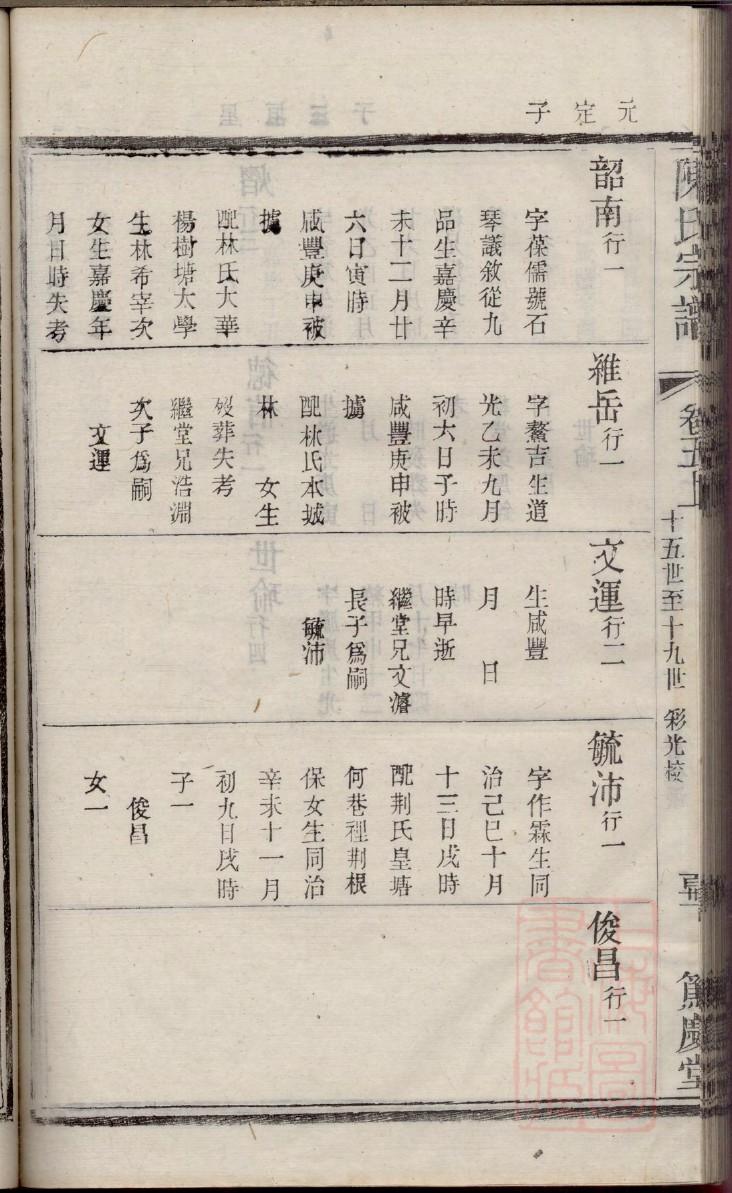 元定子
陳氏宗譜
卷五上
十五世至十九世 彩光校
篤慶堂
韶南行一
字葆儒號石
琴議敘從九
品生嘉慶辛
未十二月廿
六日寅時
咸豐庚申被
擄
配林氏大華
楊樹塘大學
生林希宰次
女生嘉慶年
月日時失考
維岳行一
字鰲吉生道
光乙未九月
初六日子時
咸豐庚申被
擄
配林氏本城
林 女生
歿葬失考
繼堂兄浩淵
次子爲嗣
文運
文運行二
生咸豐
月 日
時早逝
繼堂兄文濬
長子爲嗣
毓沛
毓沛行一
字作霖生同
治己巳十月
十三日戌時
配荆氏皇塘
何巷裡荆根
保女生同治
辛未十一月
初九日戌時
子一
俊昌
女一
俊昌行一
上海圖書館藏